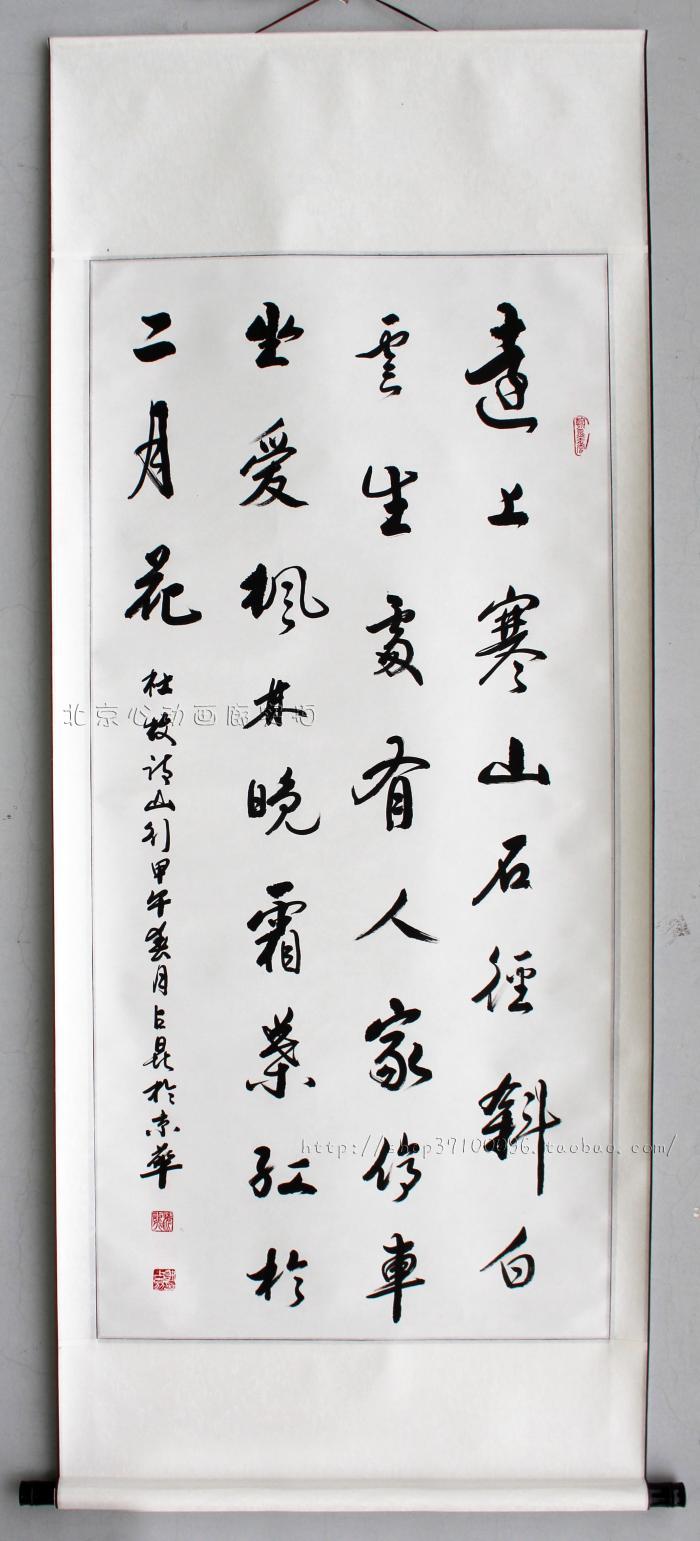 遠上寒山石徑斜白
雲生處有人家停車
坐爱楓林晚霜葉红於
二月花
杜牧诗山行甲午春月占昆於京華
北京心动画廊
http://shop37100096.taobao.com/